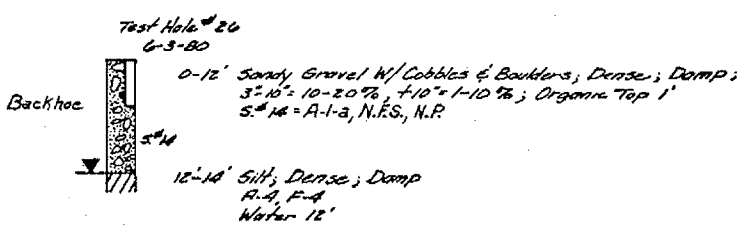 Test Hole #26
6-3-80
0-12' Sandy Gravel W/Cobbles & Boulders; Dense; Damp;
3"-10"= 10-20%, +10"= 1-10%; Organic Top 1'
S.#14 = A-1-a, N.F.S., N.P.
Backhoe
S.#14
12'-14' Silt; Dense; Damp
A-4, F-4
Water 12'